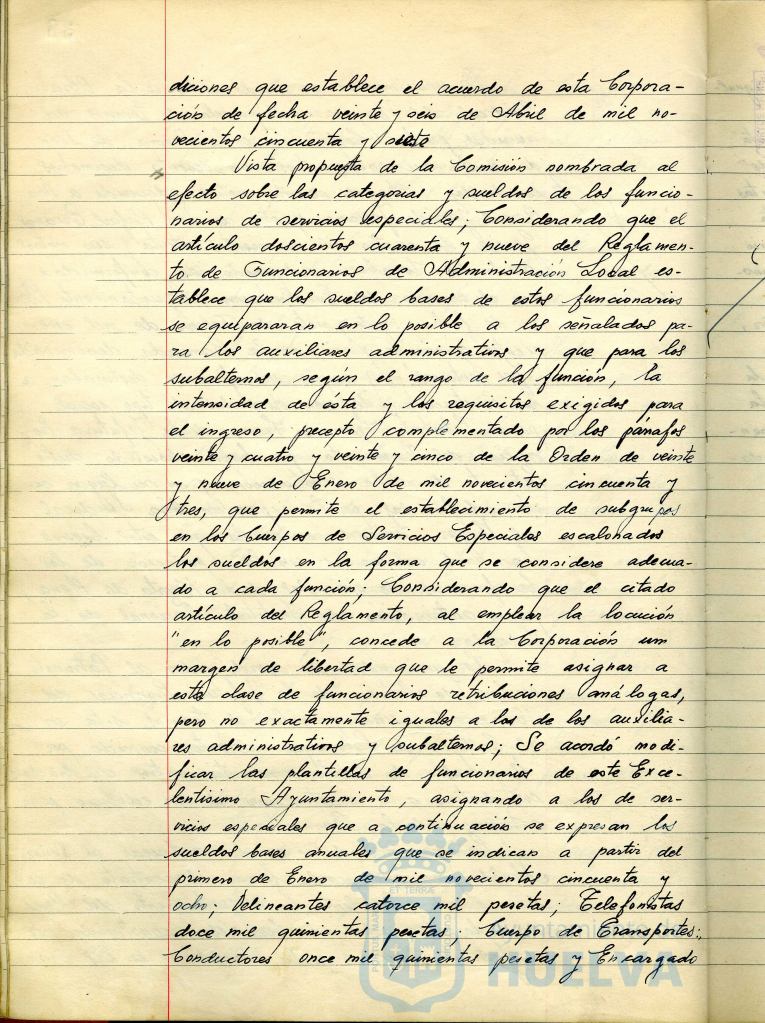 diciones que establece el acuerdo de esta Corpora-
ción de fecha veinte y seis de Abril de mil no-
vecientos cincuenta y siete
Vista propuesta de la Comisión nombrada al
efecto sobre las categorias y sueldos de los funcio-
narios de servicios especiales; Considerando que el
artículo doscientos cuarenta y nueve del Reglamen-
to de Funcionarios de Administración Local es-
tablece que los sueldos bases de estos funcionarios
se equipararan en lo posible a los señalados pa-
ra los auxiliares administrativos y que para los
subalternos, según el rango de la función, la
intensidad de ésta y los requisitos exigidos para
el ingreso, precepto complementado por los párrafos
veinte y cuatro y veinte y cinco de la Orden de veinte
y nueve de Enero de mil novecientos cincuenta y
tres, que permite el establecimiento de subgrupos
en los Cuerpos de Servicios Especiales escalonados
los sueldos en la forma que se considere adecua-
do a cada función; Considerando que el citado
artículo del Reglamento, al emplear la locución
"en lo posible", concede a la Corporación um
margen de libertad que le permite asignar a
esta clase de funcionarios retribuciones análogas,
pero no exactamente iguales a los de los auxilia-
res administrativos y subalternos; Se acordó modi-
ficar las plantillas de funcionarios de este Exce-
lentísimo Ayuntamiento, asignando a los de ser-
vicios especiales que a continuación se expresan los
sueldos bases anuales que se indican a partir del
primero de Enero de mil novecientos cincuenta y
ocho; Delineantes catorce mil pesetas; Telefonistas
doce mil quinientas pesetas; Cuerpo de Transportes:
Conductores once mil quinientas pesetas y Encargado
HUELVA